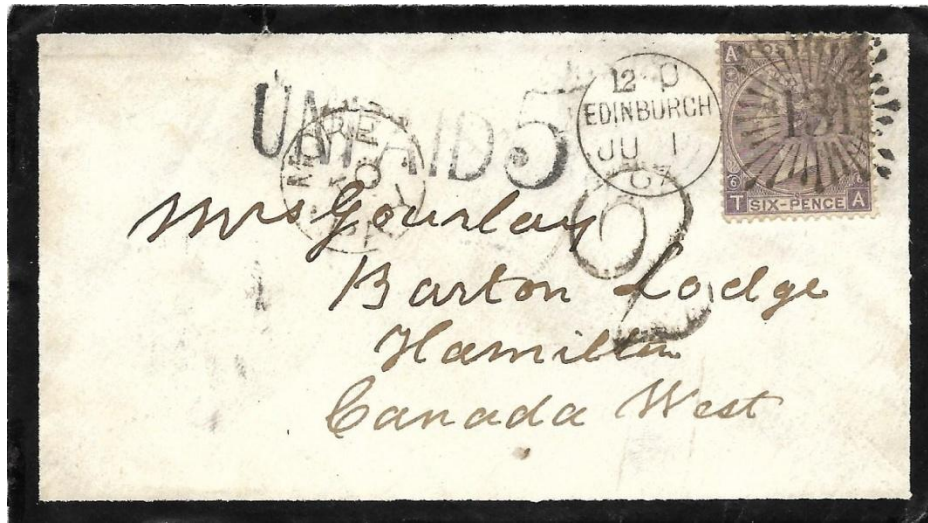 UNPAID 5
12 P
EDINBURGH
JU 1
67
A
131
6
T SIX-PENCE A
2
Mrs Gourlay
Barton Lodge
Hamilton
Canada West